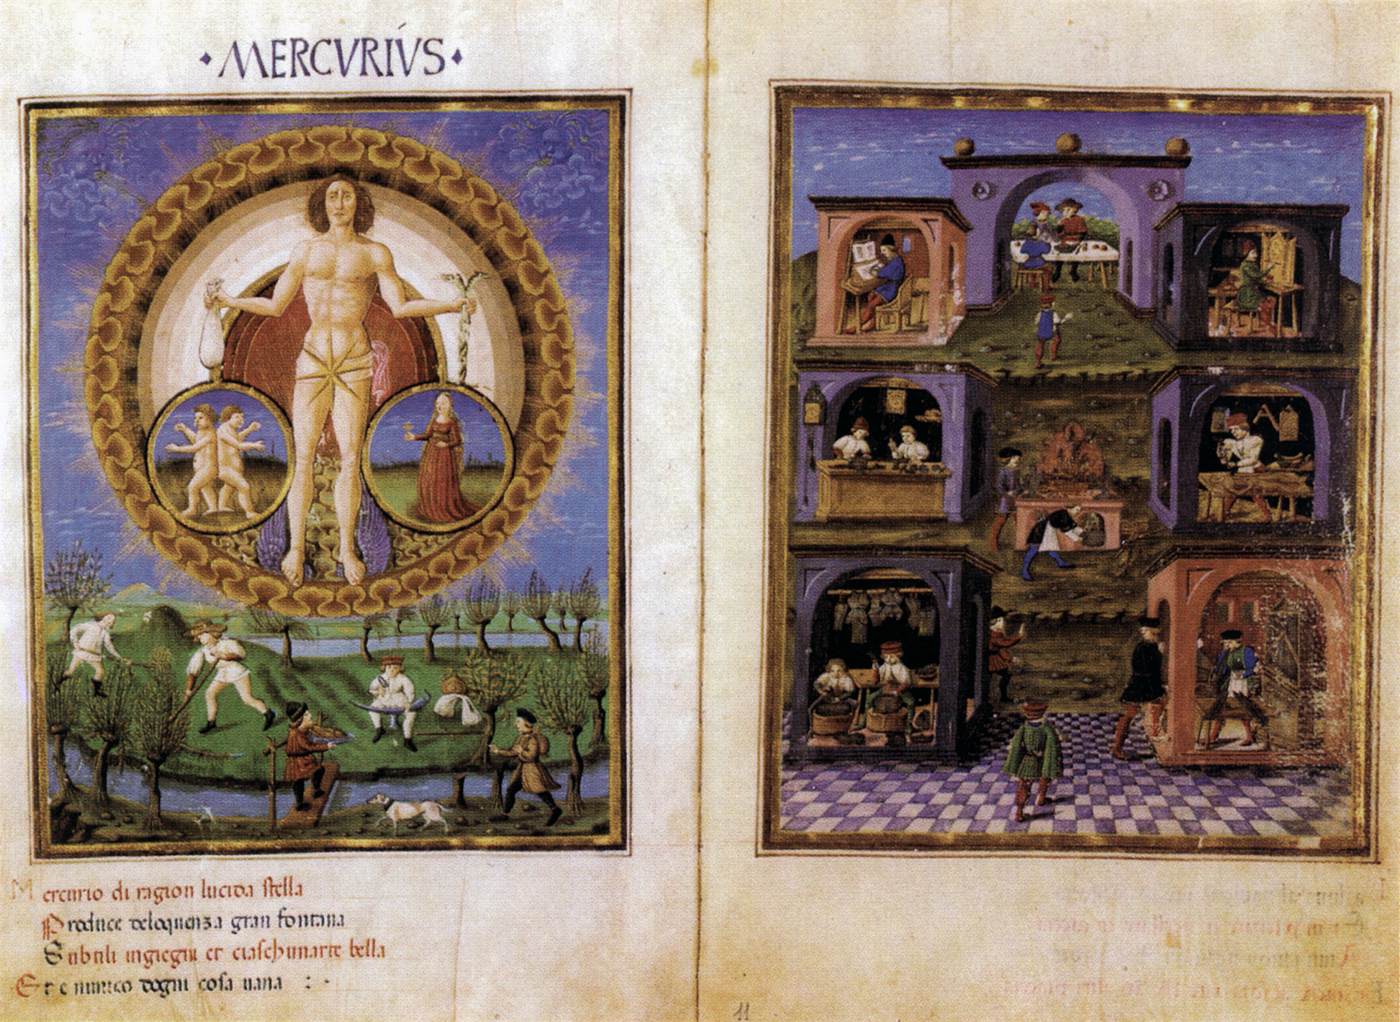 · MERCVRIVS ·
Mercurio di ragion lucida stella
Produce deloquenza gran fontana
Subtili ingiegni et ciaschunarte bella
Et e nimico dogni cosa uana : ·
11